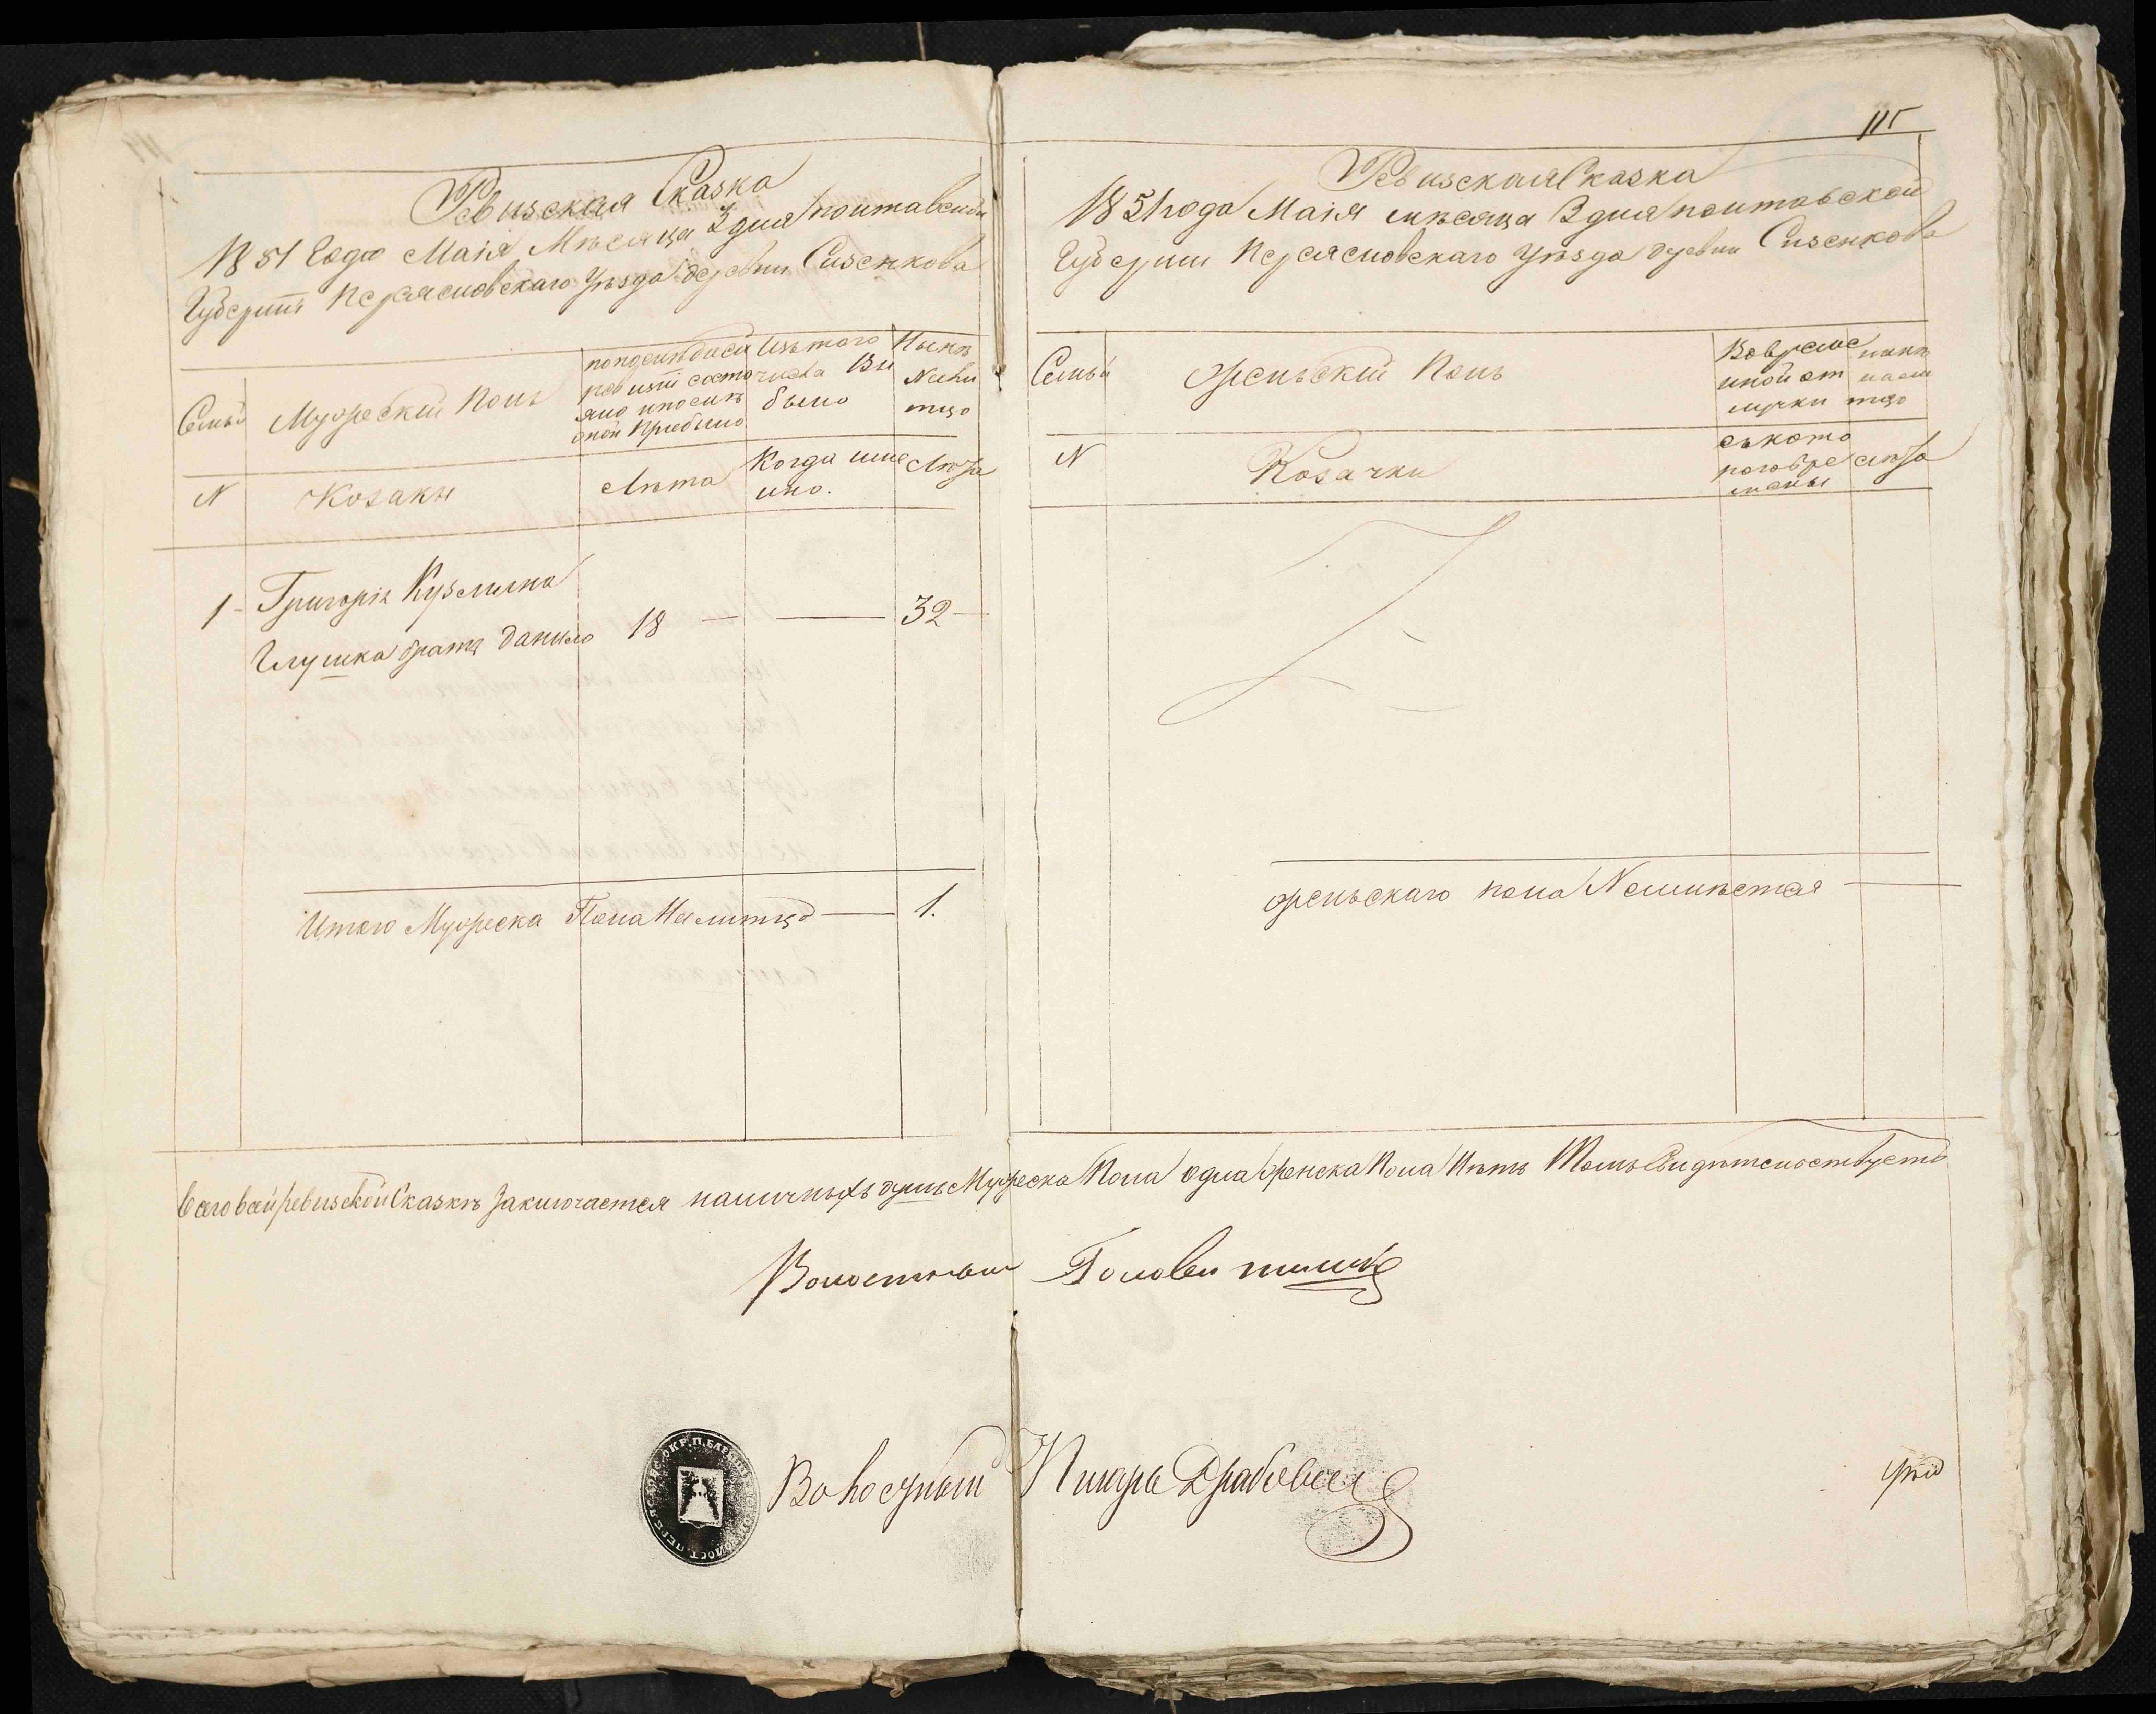 Ревизская Сказка
1851 Года Маія Мѣсяца 3 дня полтавской
Губерніи Переясловскаго Уѣзда деревни Сизенкова
Семьи
Мужескій Полъ
по последней
ревизіи состо
яло и после
оной Прибыло
Изътого
числа Вы
было
Нынѣ
На ли
тцо
N
Козаки
Лѣта
Когда име
нно.
Лѣта
1 - Григорія Кузмина
Глушка братъ Данило 18 — — 32 —
Итого Мужеска Пола На литцо — 1.
115
Ревизская Сказка
1851 года Маія мѣсяца 3 дня полтавской
Губерніи Переясловскаго Уѣзда деревни Сизенкова
Семьи
женьскій Полъ
Вовреме
нной от
лучки
нынѣ
нали
тцо
N
Козачки
съкото
раговре
мены
лѣта
женьскаго пола Неимѣется —
ревизской Сказкѣ Заключается наличныхъ душъ Мужеска Пола одна женска Пола Нѣтъ Томъ Свидѣтельствуетъ
Волостный Голова
Волостный Писарь